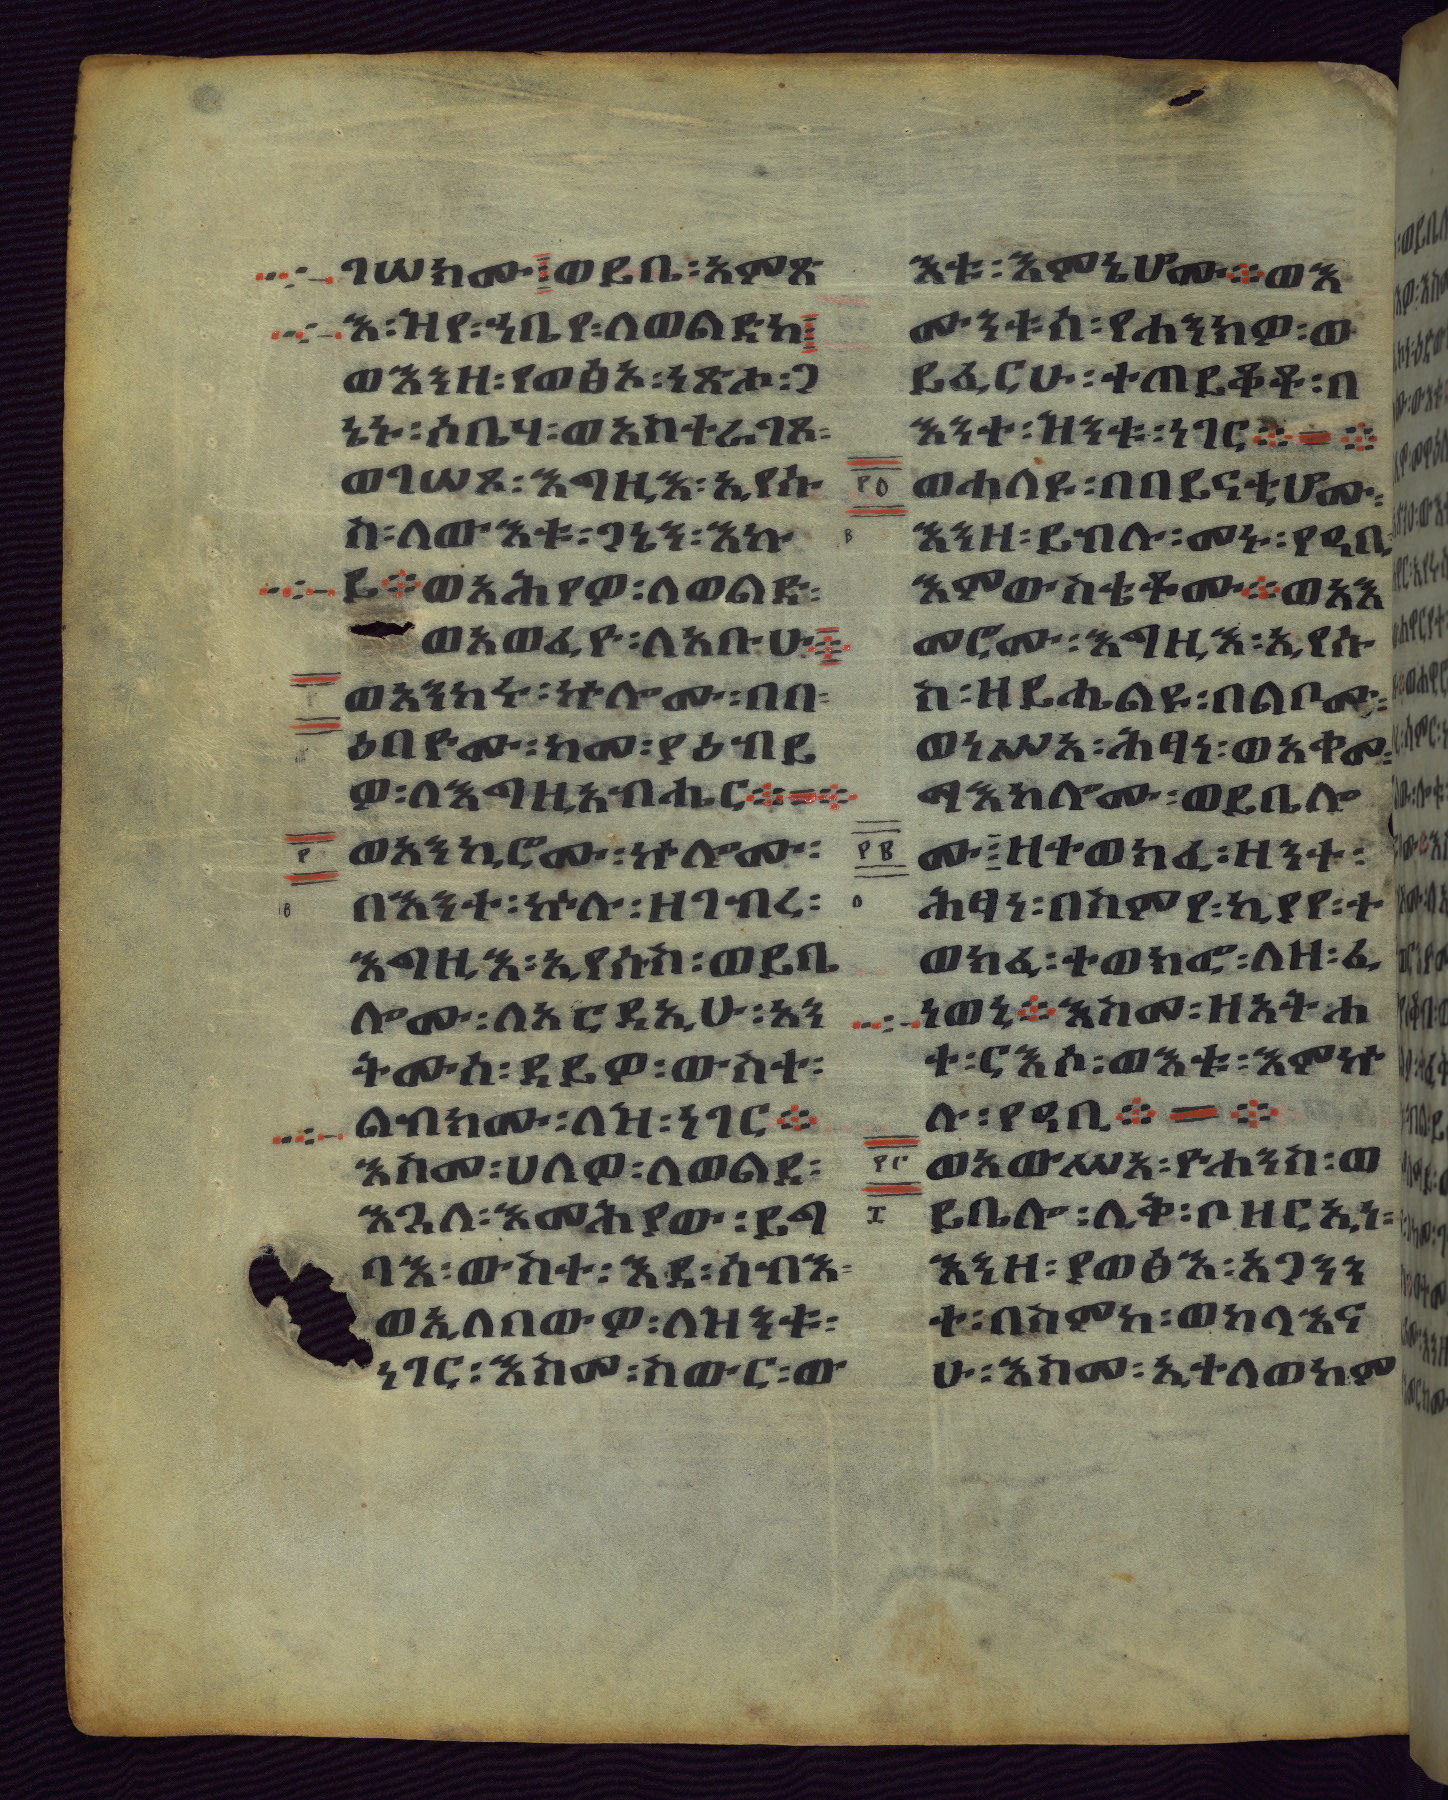 ገሠክሙ፤ወይቤ፡አምጽ
እ፡ዝየ፡ኀቤየ፡ለወልድከ፤
ወእንዘ፡የወፅእ፡ነጽሖ፡ጋ
ኔኑ፡ሶቤሃ፡ወአስተራገጾ፡
ወገሠጾ፡እግዚእ፡ኢየሱ
ስ፡ለውእቱ፡ጋኔን፡እኩ
ይ፨ወአሕየዎ፡ለወልድ፡
ወአወፈዮ፡ለአቡሁ፨
ወአንከሩ፡ኵሎሙ፡በበ፡
ዕበዮሙ፡ከመ፡ያዕብይ
ዎ፡ለእግዚአብሔር፨
ወአንኪሮሙ፡ኵሎሙ፡
በእንተ፡ኵሉ፡ዘገብረ፡
እግዚእ፡ኢየሱስ፡ወይቤ
ሎሙ፡ለአርዳኢሁ፡አን
ትሙሰ፡ደይዎ፡ውስተ፡
ልብክሙ፡ለዝ፡ነገር፨
እስመ፡ሀለዎ፡ለወልደ፡
እጓለ፡እመሕያው፡ይግ
ባእ፡ውስተ፡እደ፡ሰብእ፡
ወኢለበውዎ፡ለዝንቱ፡
ነገር፡እስመ፡ስውር፡ው
እቱ፡እምኔሆሙ፨ወእ
ሙንቱሰ፡የሐንክዎ፡ወ
ይፈርሁ፡ተጠይቆቶ፡በ
እንተ፡ዝንቱ፡ነገር፨
፻፭ ወሐለዩ፡በበይናቲሆሙ፡
፪ እንዘ፡ይብሉ፡መኑ፡የዓቢ
እምውስቴቶሙ፨ወአእ
መሮሙ፡እግዚእ፡ኢየሱ
ስ፡ዘይሔልዩ፡በልቦሙ፡
ወነሥአ፡ሕፃነ፡ወአቀመ፡
ማእከሎሙ፡ወይቤሎ
፻፪ ሙ፤ዘተወክፈ፡ዘንተ፡
ሕፃነ፡በስምየ፡ኪያየ፡ተ
ወክፈ፡ተወክፎ፡ለዘ፡ፈ
ነወኒ፨እስመ፡ዘአትሐ
ተ፡ርእሶ፡ውእቱ፡እምኵ
ሉ፡የዓቢ፨
፻፫ ወአውሥአ፡ዮሐንስ፡ወ
፲ ይቤሎ፡ሊቅ፡ቦ ዘርኢነ፡
እንዘ፡ያወፅእ፡አጋንን
ተ፡በስምከ፡ወከላእና
ሁ፡እስመ፡ኢተለወከም